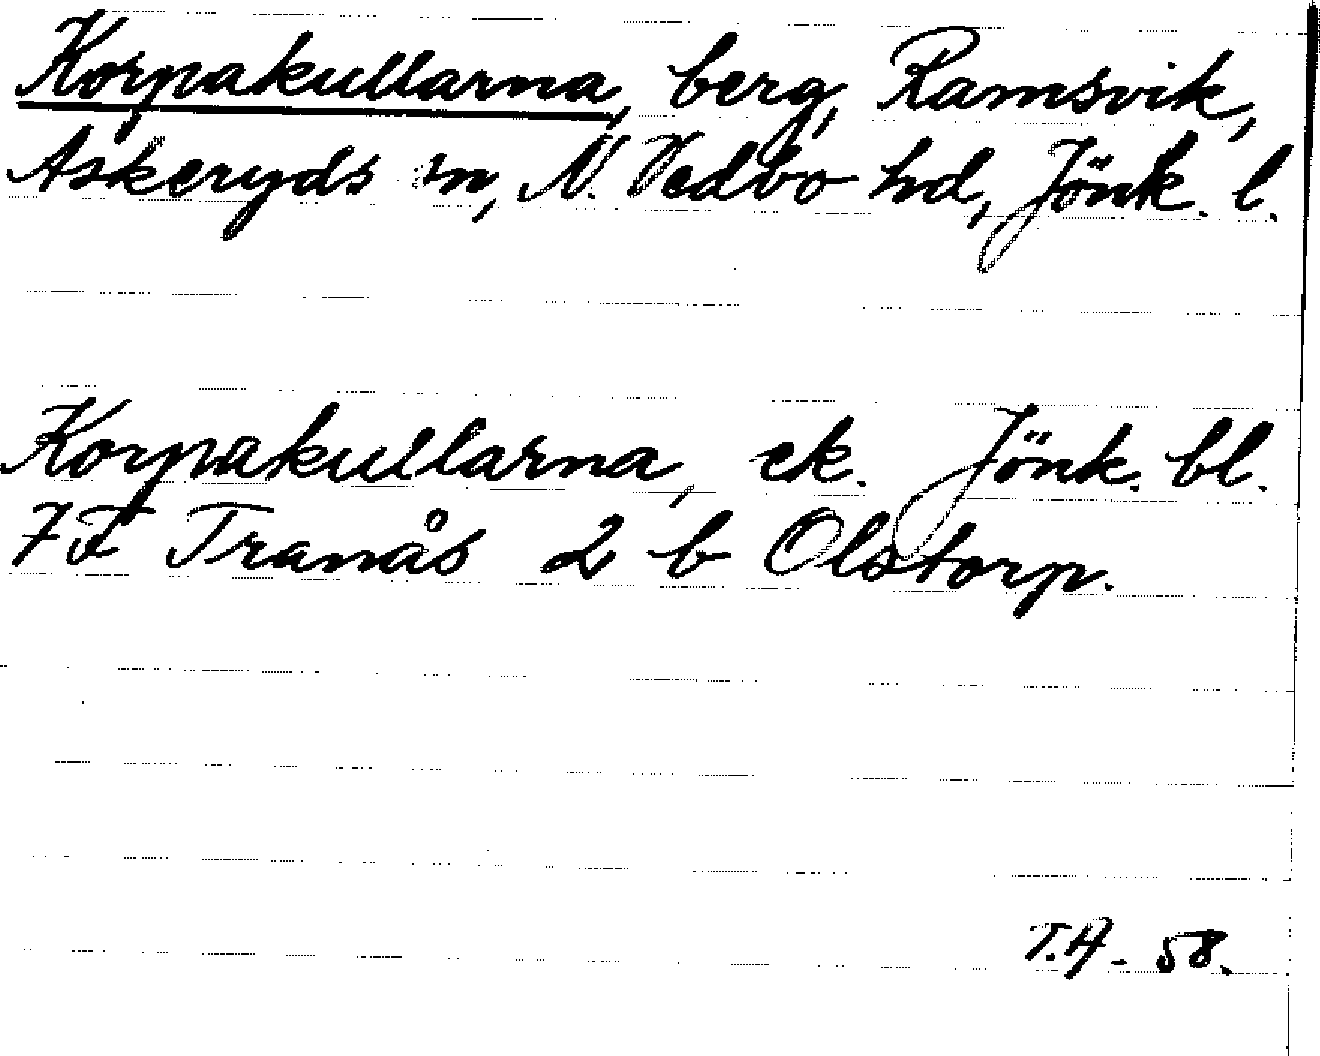 Korpakullarna, berg, Ramsvik,
Askeryds sn, N. Vedbo hd, Jönk. l.
Korpakullarna, ek. Jönk. bl.
7F Tranås 2 b Olstorp.
T.A - 58.